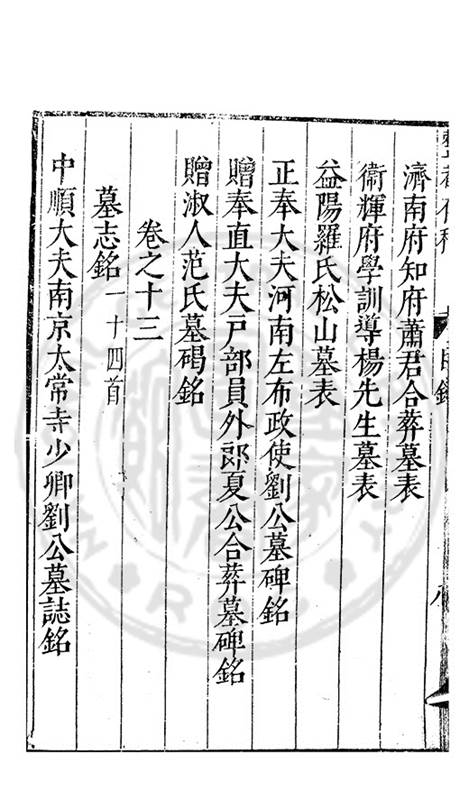 濟南府知府蕭君合葬墓表
衛輝府學訓導楊先生墓表
益陽羅氏松山墓表
正奉大夫河南左布政使劉公墓碑銘
贈奉直大夫戸部員外郎夏公合葬墓碑銘
贈淑人范氏墓碣銘
卷之十三
墓志銘一十四首
中順大夫南京太常寺少卿劉公墓誌銘